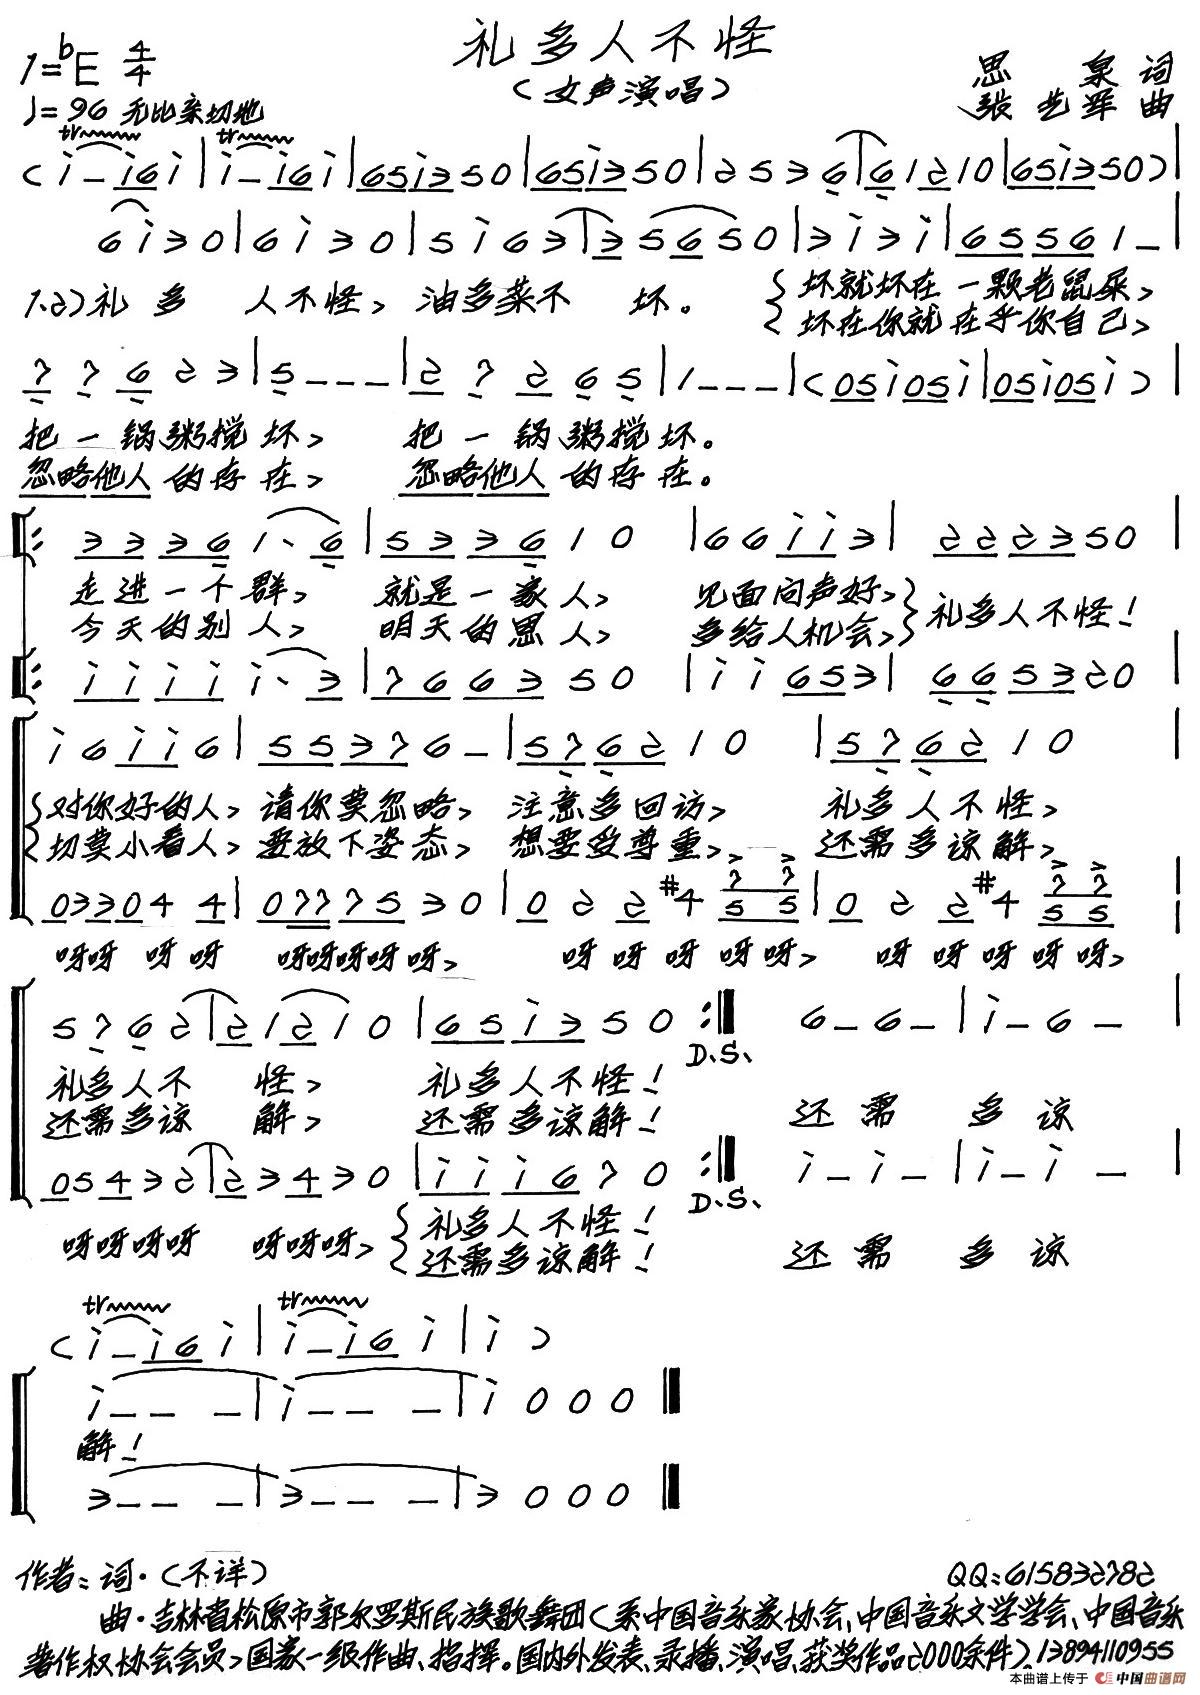 礼多人不怪
（女声演唱）
1=bE 4/4
♩=96 无比亲切地
思泉 词
张艺军 曲
tr tr
(i－i6i|i－i6i|65i350|65i350|2536|61210|65i350)|
6i30|6i30|5i63|35650|3i3i|65561－|
1.2)礼多人不怪，油多菜不坏。
坏就坏在一颗老鼠屎，
坏在你就在乎你自己，
77623|5－－－|27265|1－－－|(05i05i|05i05i)|
把一锅粥搅坏，把一锅粥搅坏。
忽略他人的存在，忽略他人的存在。
33361、6|533610|66ii3|222350|
走进一个群，就是一家人，见面问声好，
今天的别人，明天的恩人，多给人机会，
礼多人不怪！
iiiii、3|766350|ii653|665320|
i6ii6|55376－|576210|576210|
对你好的人，请你莫忽略，注意多回访，礼多人不怪，
切莫小看人，要放下姿态，想要多尊重，还需多谅解，
033044|0777530|022#4 7 7 5 5|022#4 7 7 5 5|
呀呀呀呀 呀呀呀呀呀，呀呀呀呀呀，呀呀呀呀呀，
5762|21210|65i350:‖ 6－6－|i－6－|
D.S.
礼多人不怪，礼多人不怪！
还需多谅解，还需多谅解！ 还需多谅
05432|23430|iii670:‖ i－i－|i－i－|
D.S.
呀呀呀呀 呀呀呀，
礼多人不怪！
还需多谅解！ 还需多谅
tr tr
(i－i6i|i－i6i|i)
i－－－|i－－－|i000‖
解！
3－－－|3－－－|3000‖
作者：词·（不详） QQ：615832782
曲·吉林省松原市郭尔罗斯民族歌舞团（系中国音乐家协会、中国音乐文学学会、中国音乐
著作权协会会员，国家一级作曲、指挥。国内外发表、录播、演唱、获奖作品2000余件）、13894110955
本曲谱上传于 中国曲谱网